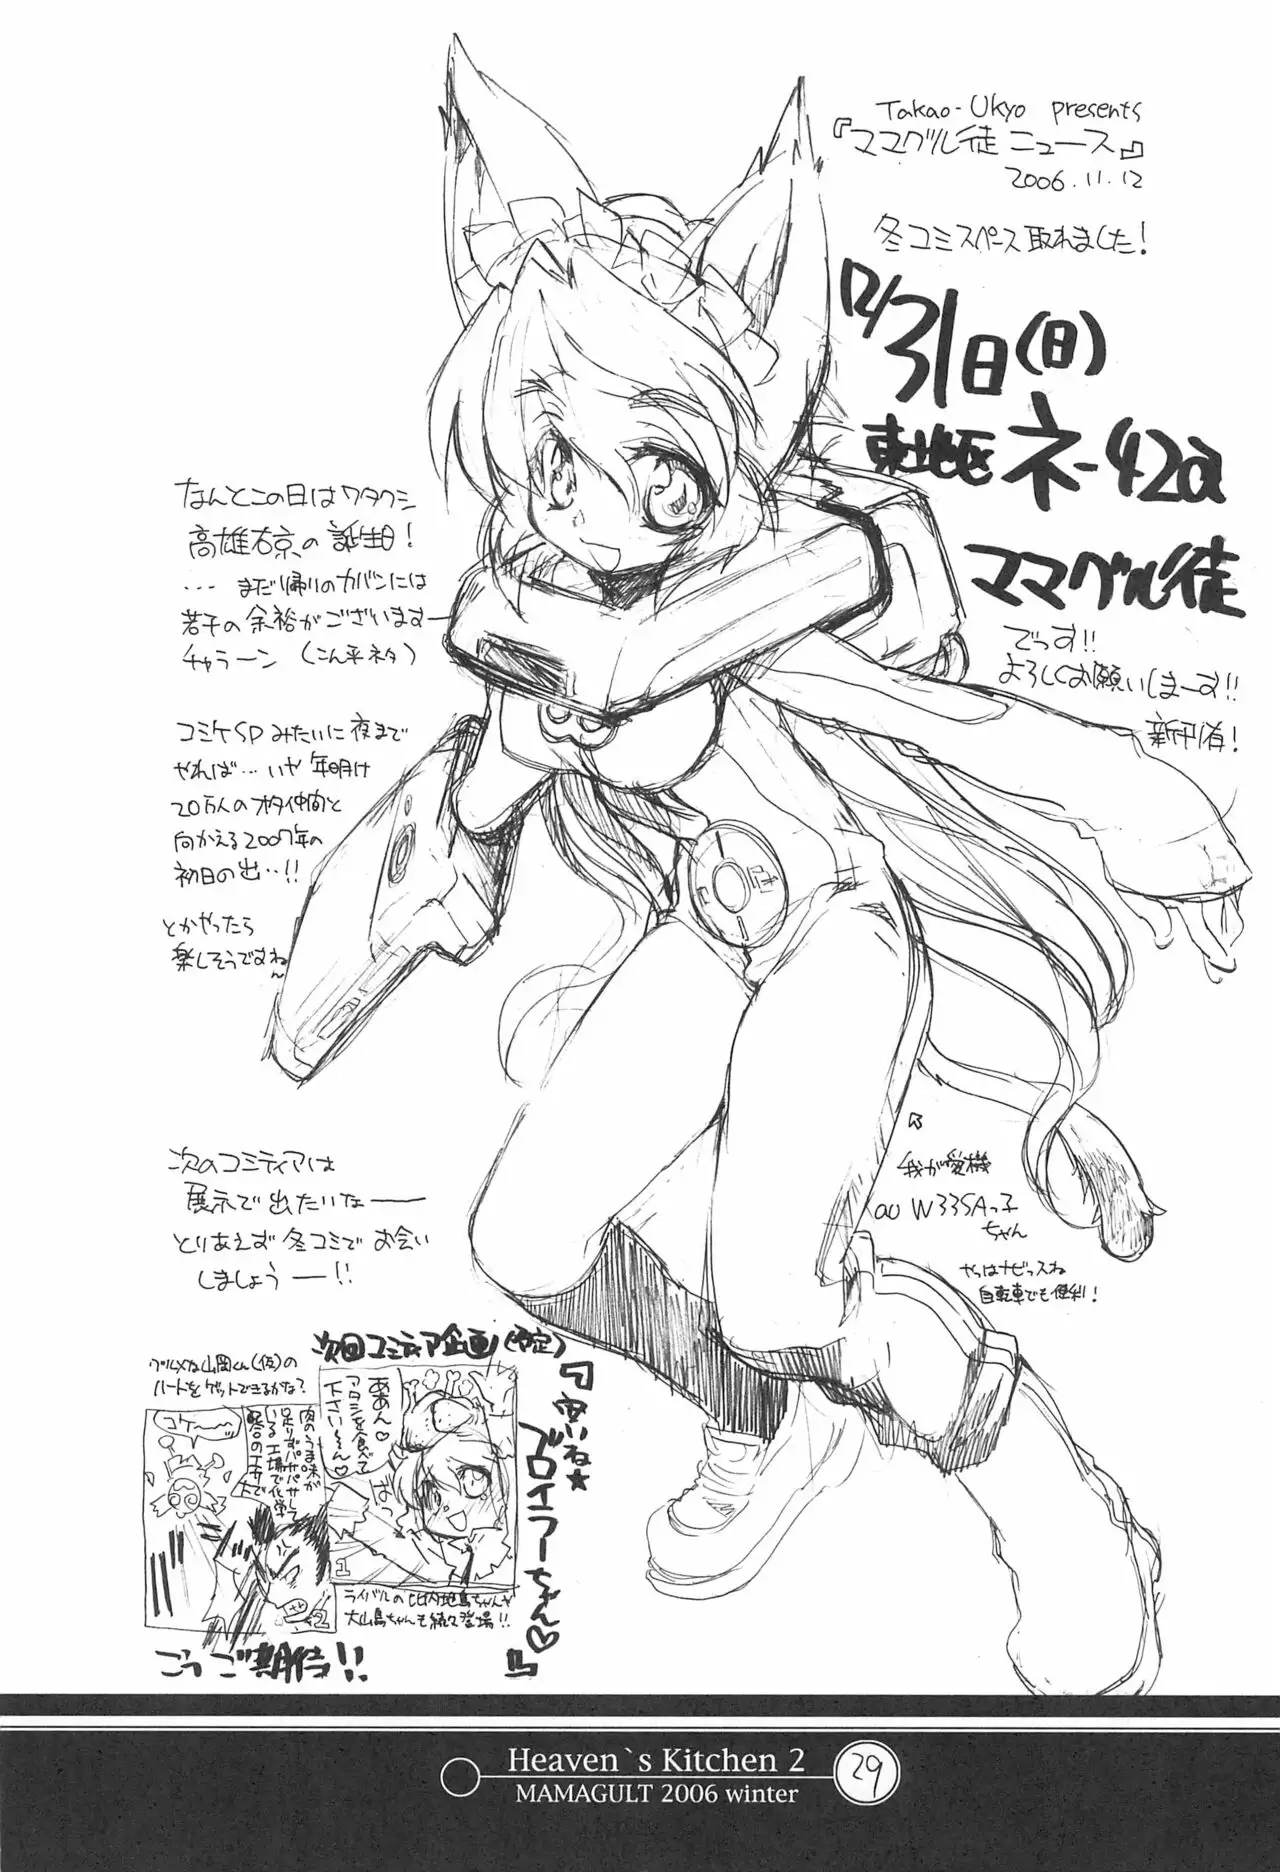 Takao-Ukyo presents
『ママグル徒 ニュース』
2006.11.12
冬コミスペース取れました!
12/31日(日)
東地区 ネ-42a
ママグル徒
でっす!!
よろしくお願いしまーす!!
新刊有!
なんとこの日はワタクシ
高雄右京、の誕生日!
... まだ帰りのカバンには
若干の余裕がございます—
チャラーン (こん平ネタ)
コミケSPみたいに夜まで
やれば…いや年明け
20万人のオタ仲間と
向かえる2007年の
初日の出…!!
とかやったら
楽しそうですねん
次のコミティアは
展示で出たいなー
とりあえず冬コミでお会い
しましょうー!!
我が愛機
au W33SAっ子
ちゃん
やっぱナビっスね
自転車でも便利!
次回コミティア企画(予定)
『安いね★
ブロイラーちゃん♡』
グルメな山岡くん(仮)の
ハートをゲットできるかな?
ああん♡
アタシを食べて
下さい〜ん♡
1
コケ〜〜ッ
肉のうま味が
足りずパサパサして
いる
2
ライバルの比内地鳥ちゃんや
大山鳥ちゃんも続々登場!!
ごうご期待!!
Heaven`s Kitchen 2
MAMAGULT 2006 winter
29